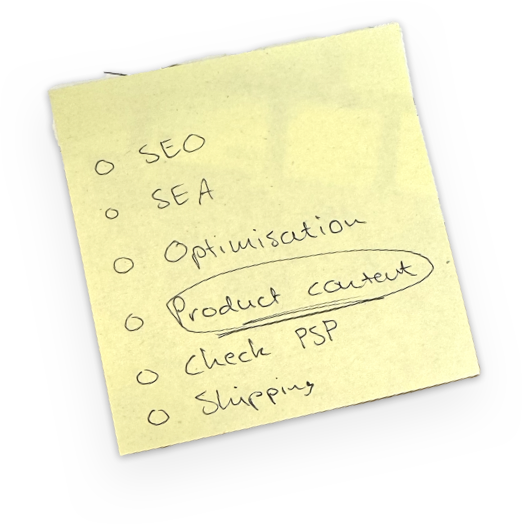 SEO
SEA
Optimisation
Product content
Check PSP
Shipping